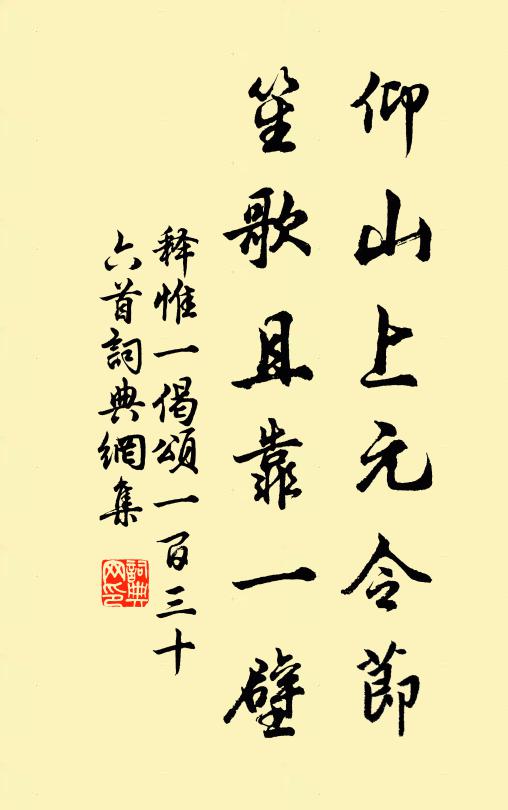 仰山上元令節
笙歌且靠一壁
释惟一偈頌一百三十
六首詞典網集
詞典网印